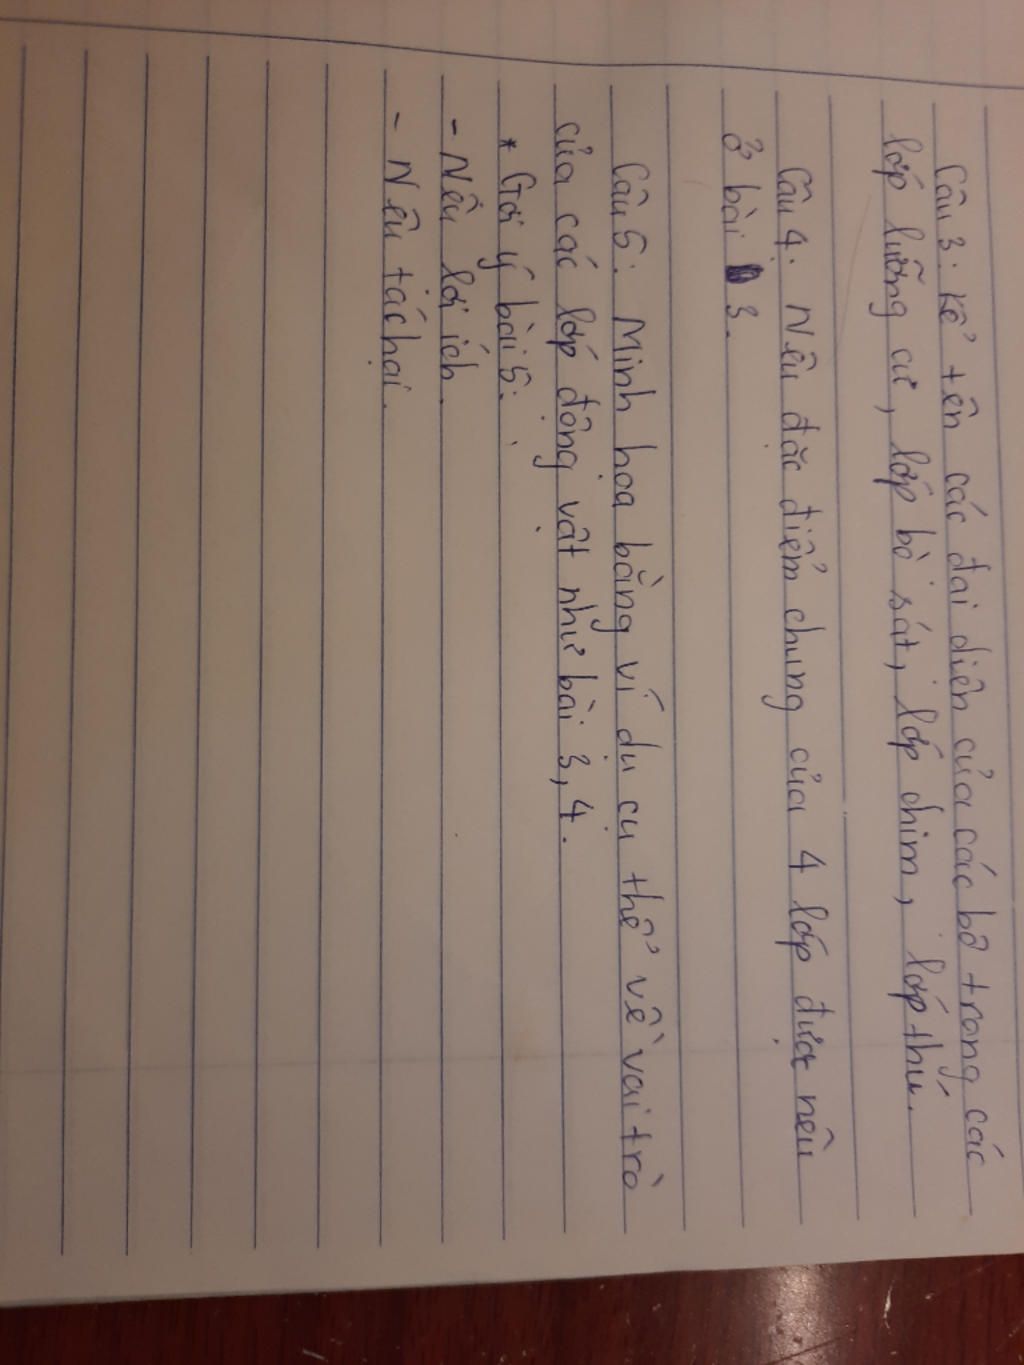 Câu 3. Kể tên các đại diện của các bộ trong các
lớp lưỡng cư, lớp bò sát, lớp chim, lớp thú.
Câu 4. Nêu đặc điểm chung của 4 lớp được nêu
ở bài 3.
Câu 5: Minh họa bằng ví dụ cụ thể về vai trò
của các lớp động vật như bài 3, 4.
* Gợi ý bài 5:
- Nêu lợi ích.
- Nêu tác hại.